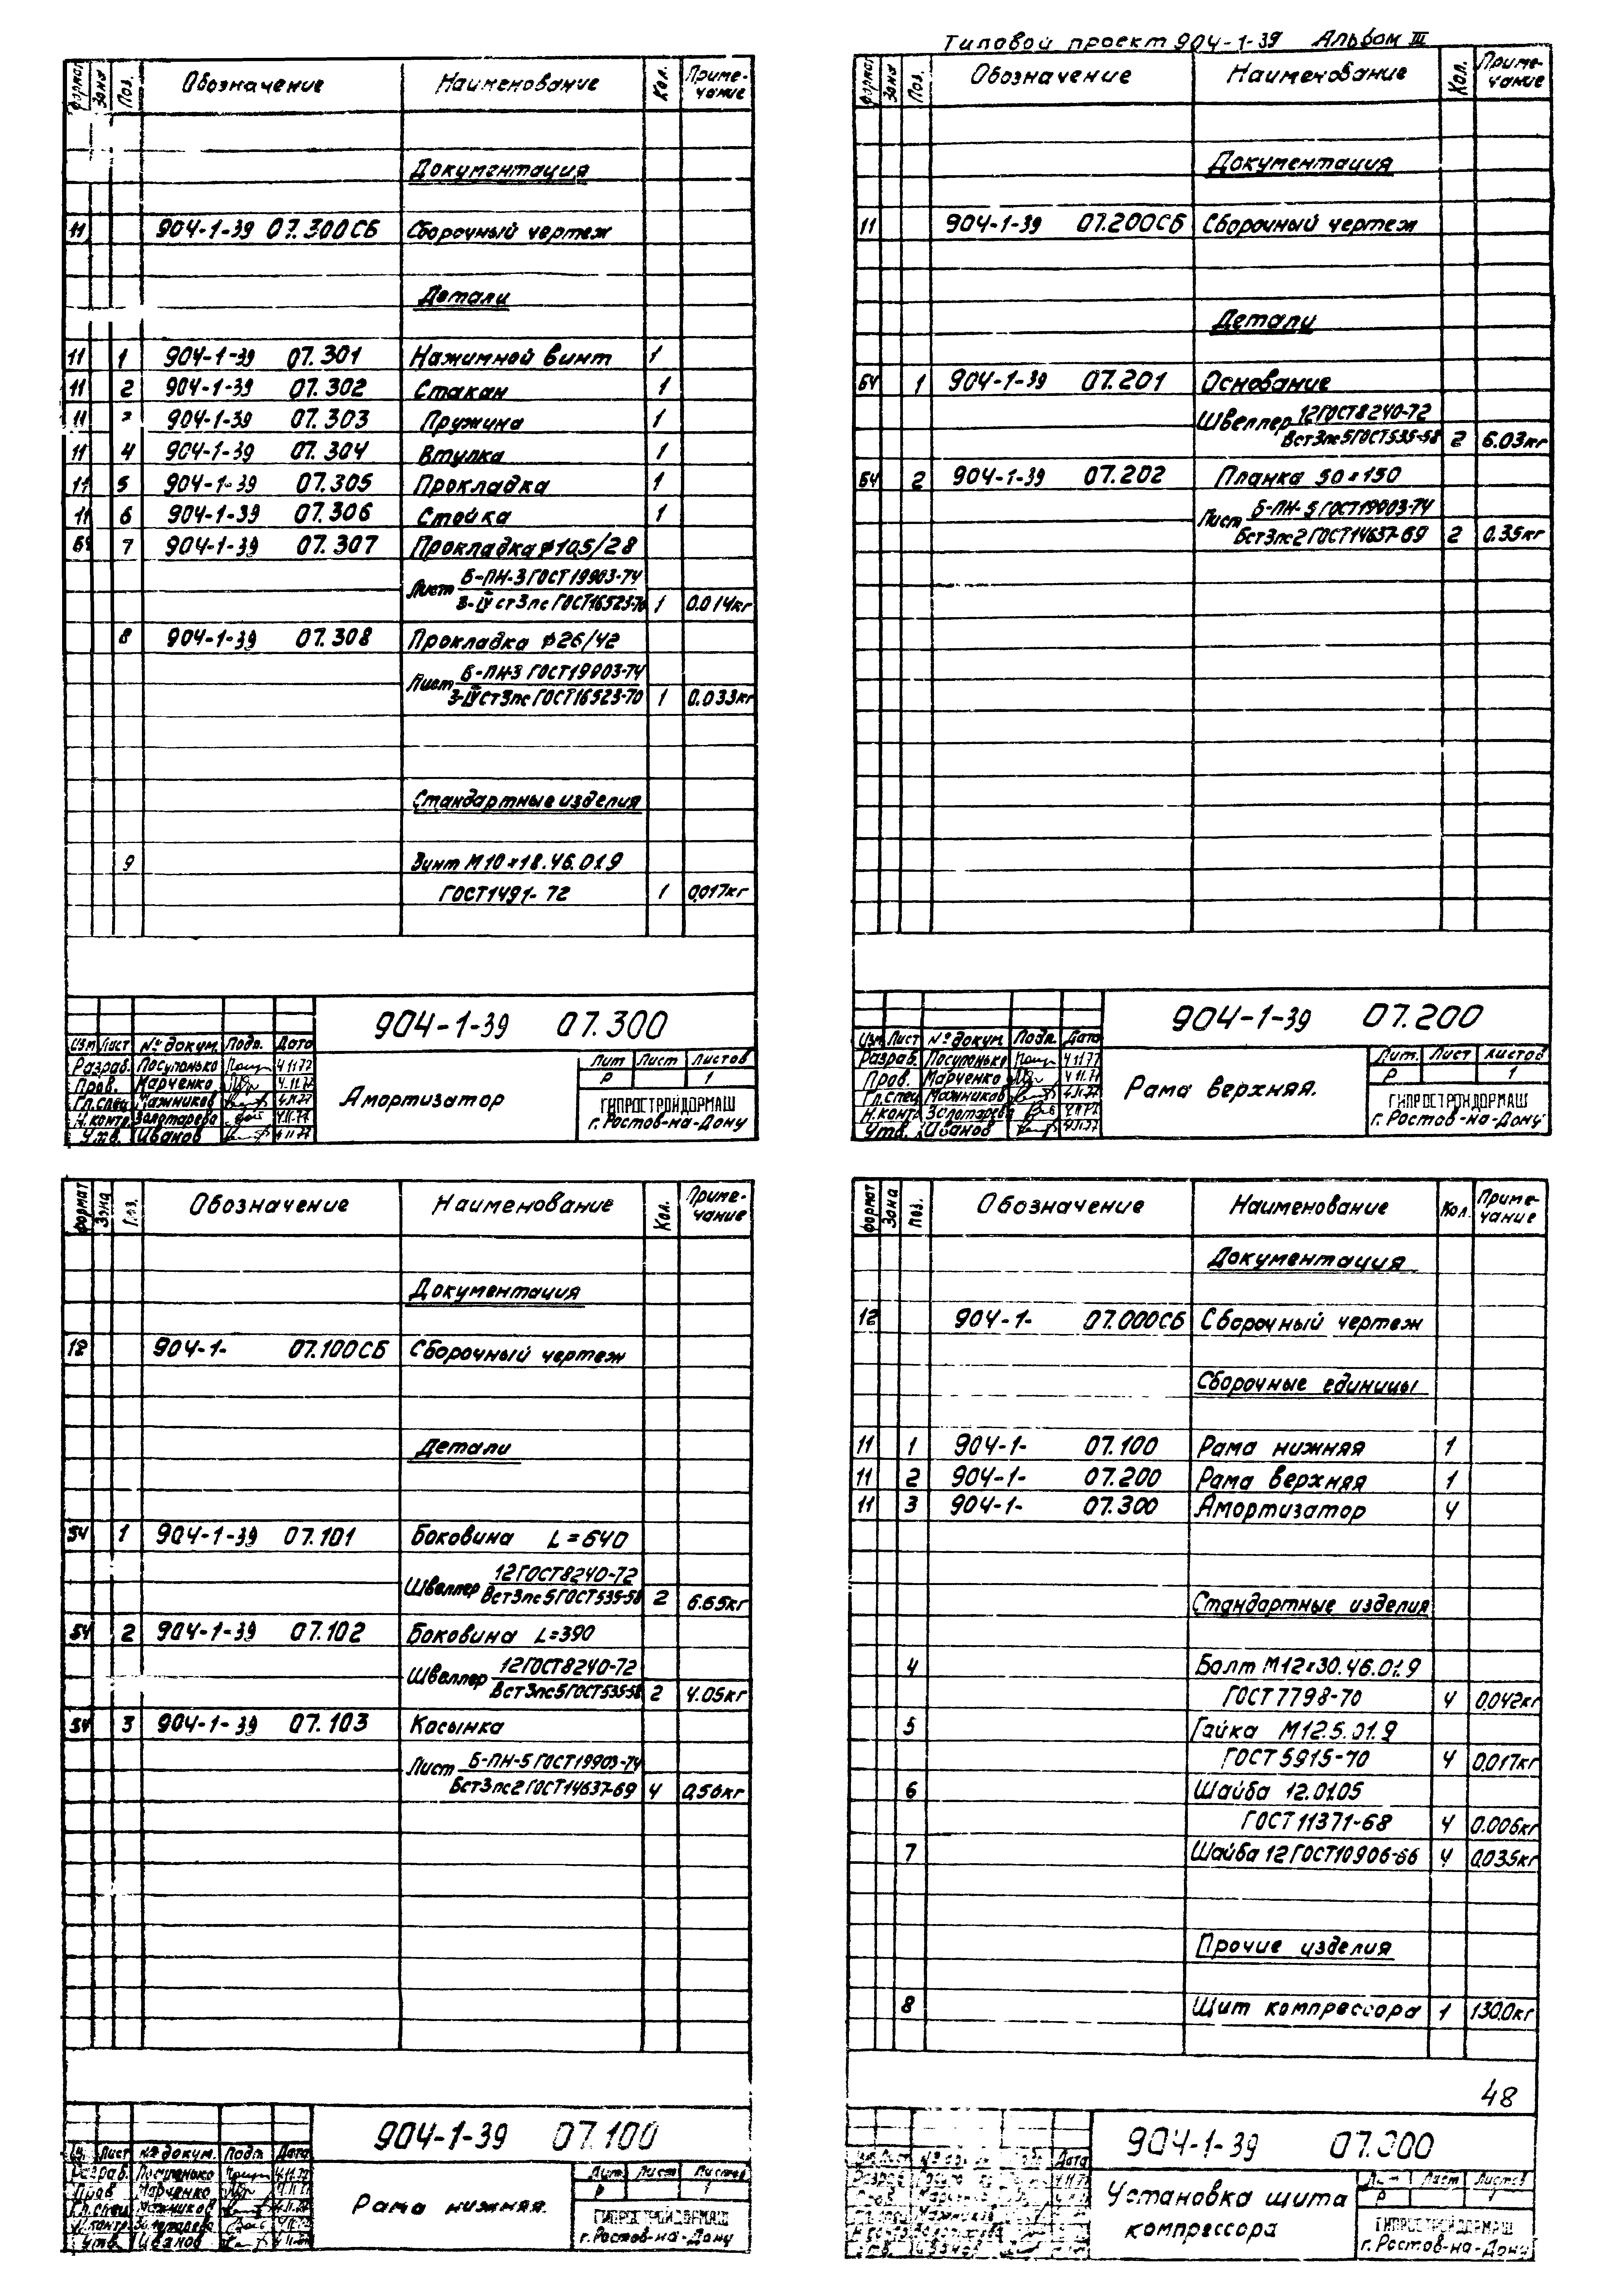 Типовой проект 904-1-39 Альбом III
Формат Зона Поз. Обозначение Наименование Кол. Приме-чание
Документация
11 904-1-39 07.300СБ Сборочный чертеж
Детали
11 1 904-1-39 07.301 Нажимной винт 1
11 2 904-1-39 07.302 Стакан 1
11 904-1-39 07.303 Пружина 1
11 4 904-1-39 07.304 Втулка 1
11 5 904-1-39 07.305 Прокладка 1
11 6 904-1-39 07.306 Стойка 1
БЧ 7 904-1-39 07.307 Прокладка ⌀10,5/28
Лист Б-ПН-3 ГОСТ 19903-74
3-IV ст3пс ГОСТ16523-70 1 0.014кг
8 904-1-39 07.308 Прокладка ⌀26/42
Лист Б-ПН-3 ГОСТ19903-74
3-IV ст3пс ГОСТ16523-70 1 0.033кг
Стандартные изделия
9 Винт М10×18.46.019
ГОСТ1491-72 1 0,017кг
904-1-39 07.300
Изм Лист № докум. Подп. Дата
Разраб. Посупонько 4.11.77
Пров. Марченко 4.11.77
Гл.спец Мажников 4.11.77
Н.контр. Золотарева 4.11.77
Утв. Иванов 4.11.77
Амортизатор
Лит Лист Листов
Р 1
ГИПРОСТРОЙДОРМАШ
г. Ростов-на-Дону
Формат Зона Поз. Обозначение Наименование Кол. Приме-чание
Документация
11 904-1-39 07.200СБ Сборочный чертеж
Детали
БЧ 1 904-1-39 07.201 Основание
Швеллер 12ГОСТ8240-72
Вст3пс5ГОСТ535-58 2 6.03кг
БЧ 2 904-1-39 07.202 Планка 50×150
Лист Б-ПН-5 ГОСТ19903-74
Вст3пс2 ГОСТ14637-69 2 0.35кг
904-1-39 07.200
Изм Лист № докум. Подп. Дата
Разраб. Посупонько 4.11.77
Пров. Марченко 4.11.77
Гл.спец Мажников 4.11.77
Н.контр Золотарева 4.11.77
Утв. Иванов 4.11.77
Рама верхняя.
Лит. Лист Листов
Р 1
ГИПРОСТРОЙДОРМАШ
г. Ростов-на-Дону
Формат Зона Поз. Обозначение Наименование Кол. Приме-чание
Документация
12 904-1- 07.100СБ Сборочный чертеж
Детали
БЧ 1 904-1-39 07.101 Боковина L=640
Швеллер 12ГОСТ8240-72
Вст3пс5ГОСТ535-58 2 6.65кг
БЧ 2 904-1-39 07.102 Боковина L=390
Швеллер 12ГОСТ8240-72
Вст3пс5ГОСТ535-58 2 4.05кг
БЧ 3 904-1-39 07.103 Косынка
Лист Б-ПН-5 ГОСТ19903-74
Вст3пс2 ГОСТ14637-69 4 0,56кг
904-1-39 07.100
Лист № докум. Подп. Дата
Разраб. Посупонько
Пров Марченко
Гл.спец. Мажников
Н.контр. Золотарева
Утв. Иванов
Рама нижняя.
Лит. Лист Листов
Р 1
ГИПРОСТРОЙДОРМАШ
г. Ростов-на-Дону
Формат Зона Поз. Обозначение Наименование Кол. Приме-чание
Документация
12 904-1- 07.000СБ Сборочный чертеж
Сборочные единицы
11 1 904-1- 07.100 Рама нижняя 1
11 2 904-1- 07.200 Рама верхняя 1
11 3 904-1- 07.300 Амортизатор 4
Стандартные изделия
4 Болт М12×30.46.019
ГОСТ 7798-70 4 0,042кг
5 Гайка М12.5.019
ГОСТ 5915-70 4 0,017кг
6 Шайба 12.01.05
ГОСТ 11371-68 4 0.006кг
7 Шайба 12 ГОСТ10906-66 4 0,035кг
Прочие изделия
8 Щит компрессора 1 130.0кг
48
904-1-39 07.000
Дата
Установка щита
компрессора
Лист Листов
Р 1
ГИПРОСТРОЙДОРМАШ
г. Ростов-на-Дону